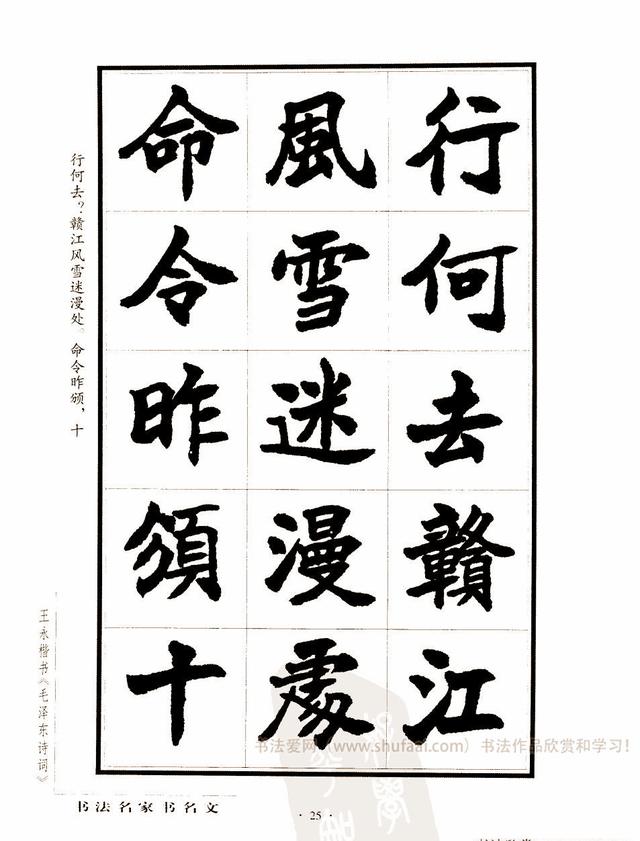 行何去贛江
風雪迷漫處
命令昨頒十
行何去？赣江风雪迷漫处。命令昨颁，十
王永楷书《毛泽东诗词》
书法名家书名文
· 25 ·
书法爱网（www.shufaai.com）书法作品欣赏和学习！